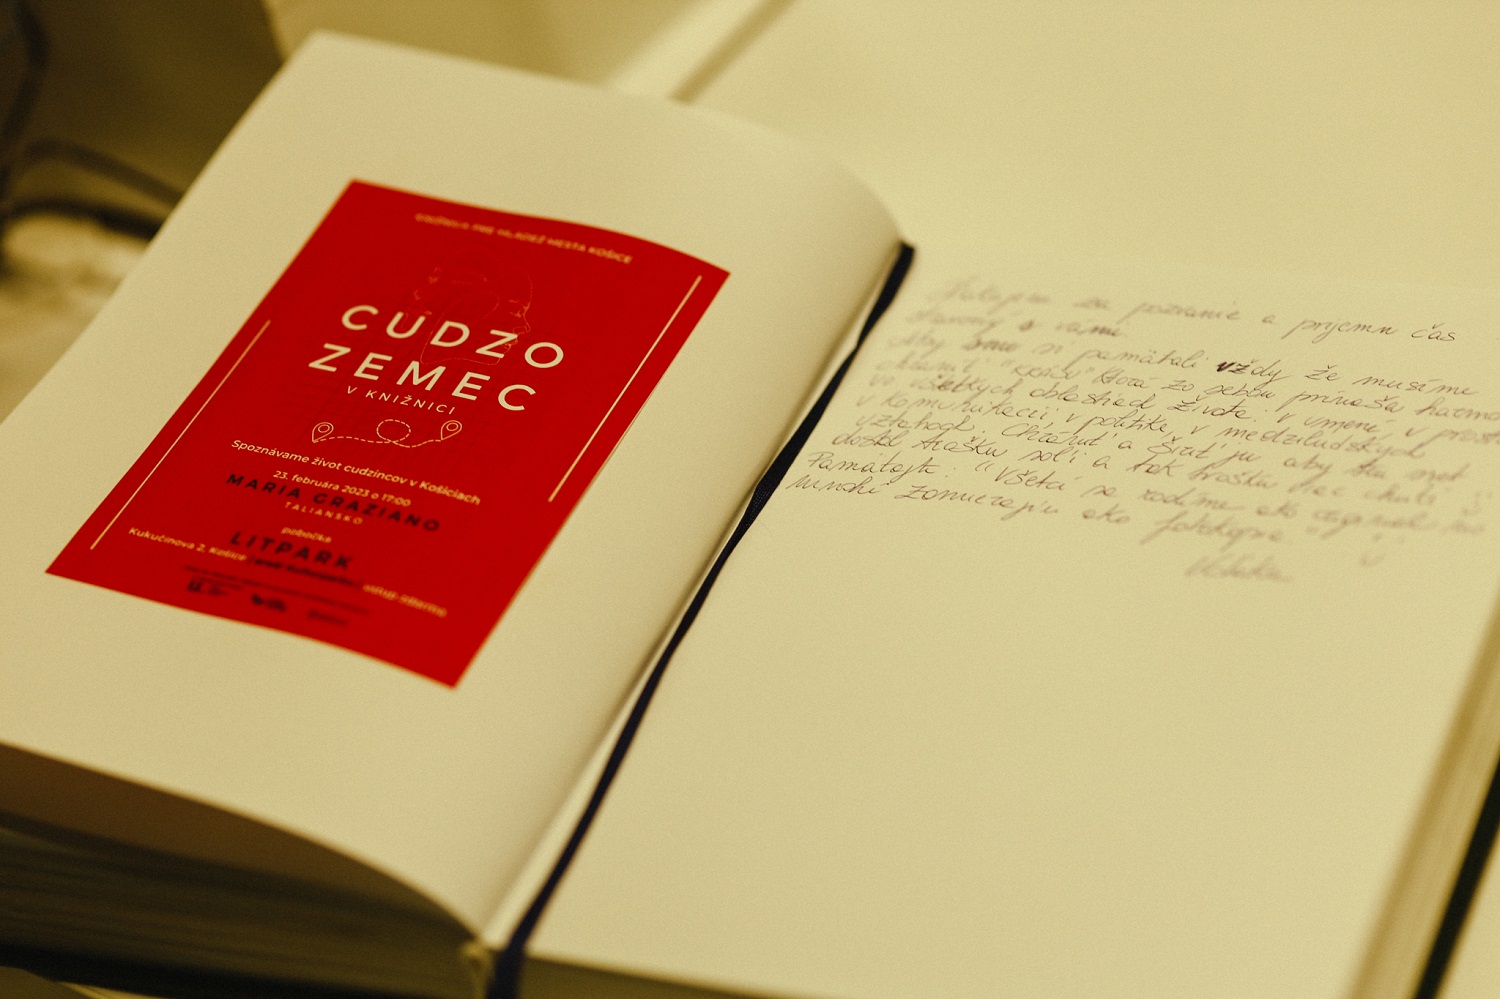 KNIŽNICA PRE MLÁDEŽ MESTA KOŠICE
CUDZO
ZEMEC
V KNIŽNICI
Spoznávame život cudzincov v Košiciach
23. februára 2023 o 17:00
MARIA GRAZIANO
TALIANSKO
pobočka
LITPARK
Kukučínova 2, Košice
vstup zdarma
za pozvanie a prijemn čas
s vami
Aby sme si pamätali vždy že musíme
chrániť ktorá zo sebou prináša
vo všetkých oblastiach života: v umení, v
v komunikácii, v politike, v medziludských
vzťahoch. Chrániť a šíriť ju aby
trošku soli a tak trošku viac chuti
Pamätajte: "Všetci sa rodíme ako
mnohí zomierajú ako fotokópie."